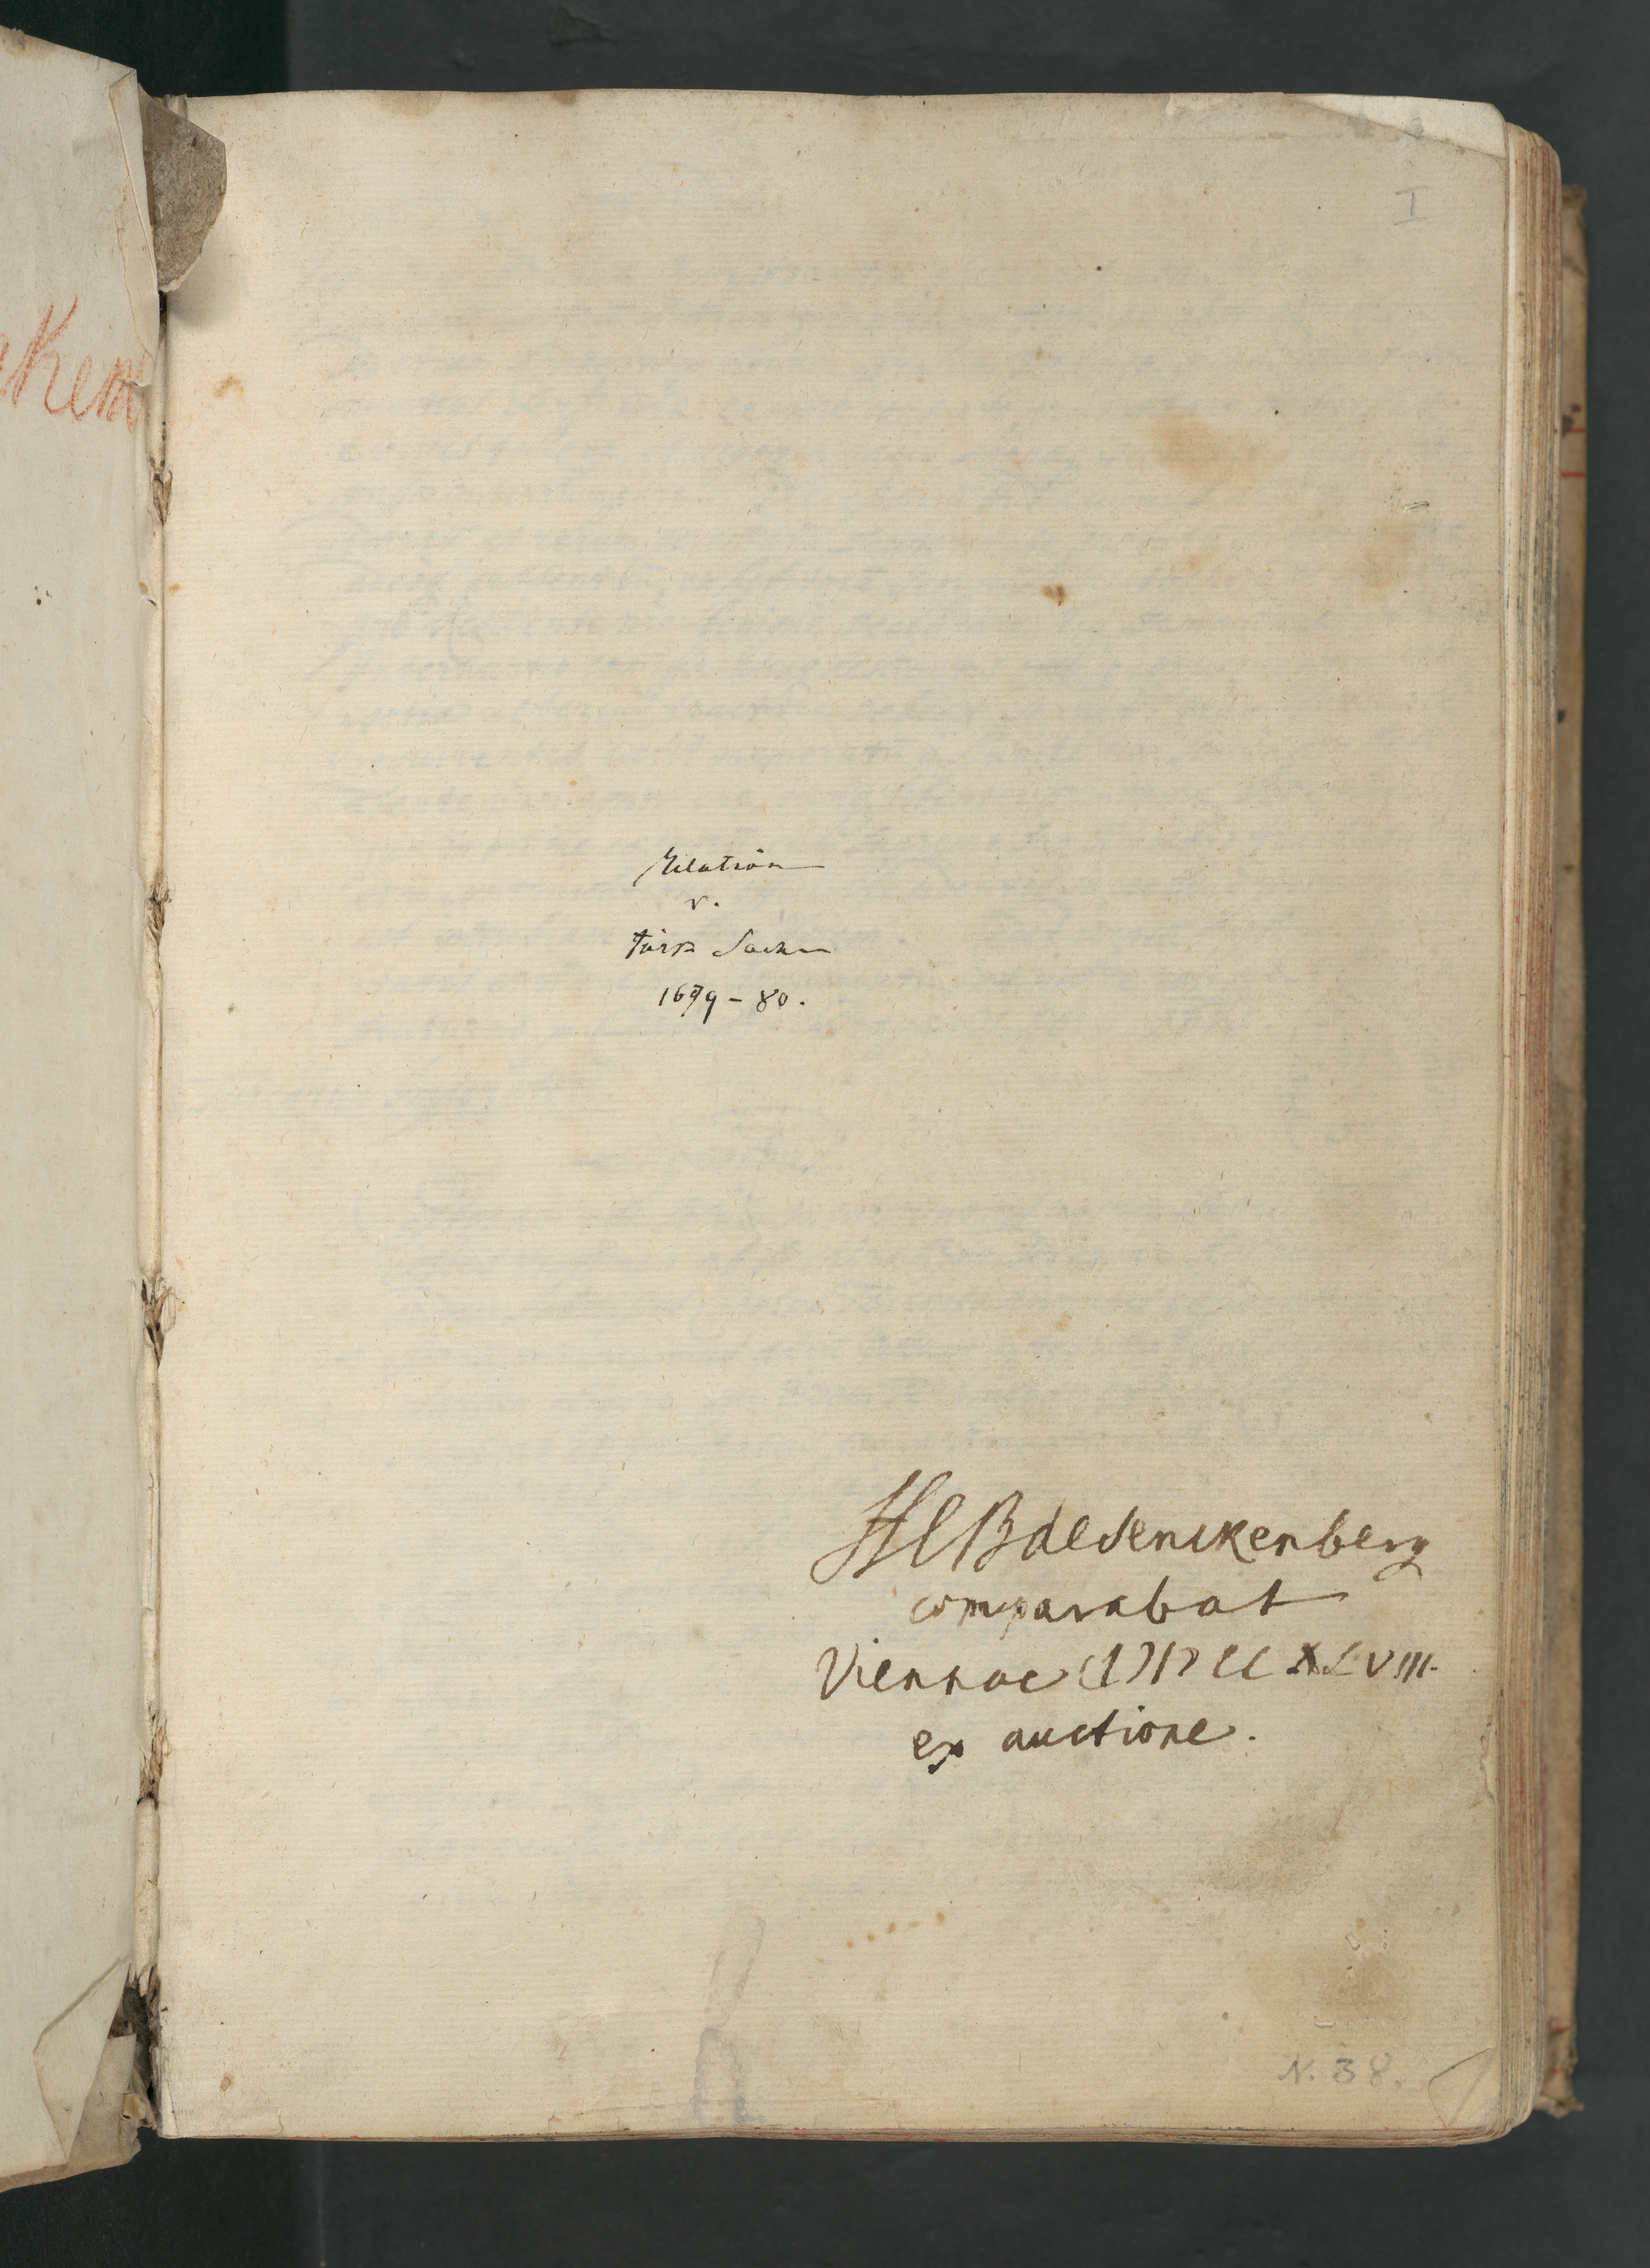 I
Relation
v.
türk Sachen
1679-80.
HCB de Senckenberg
comparabat
Viennae CIƆIƆCCXLVIII.
ex auctione.
N. 38.